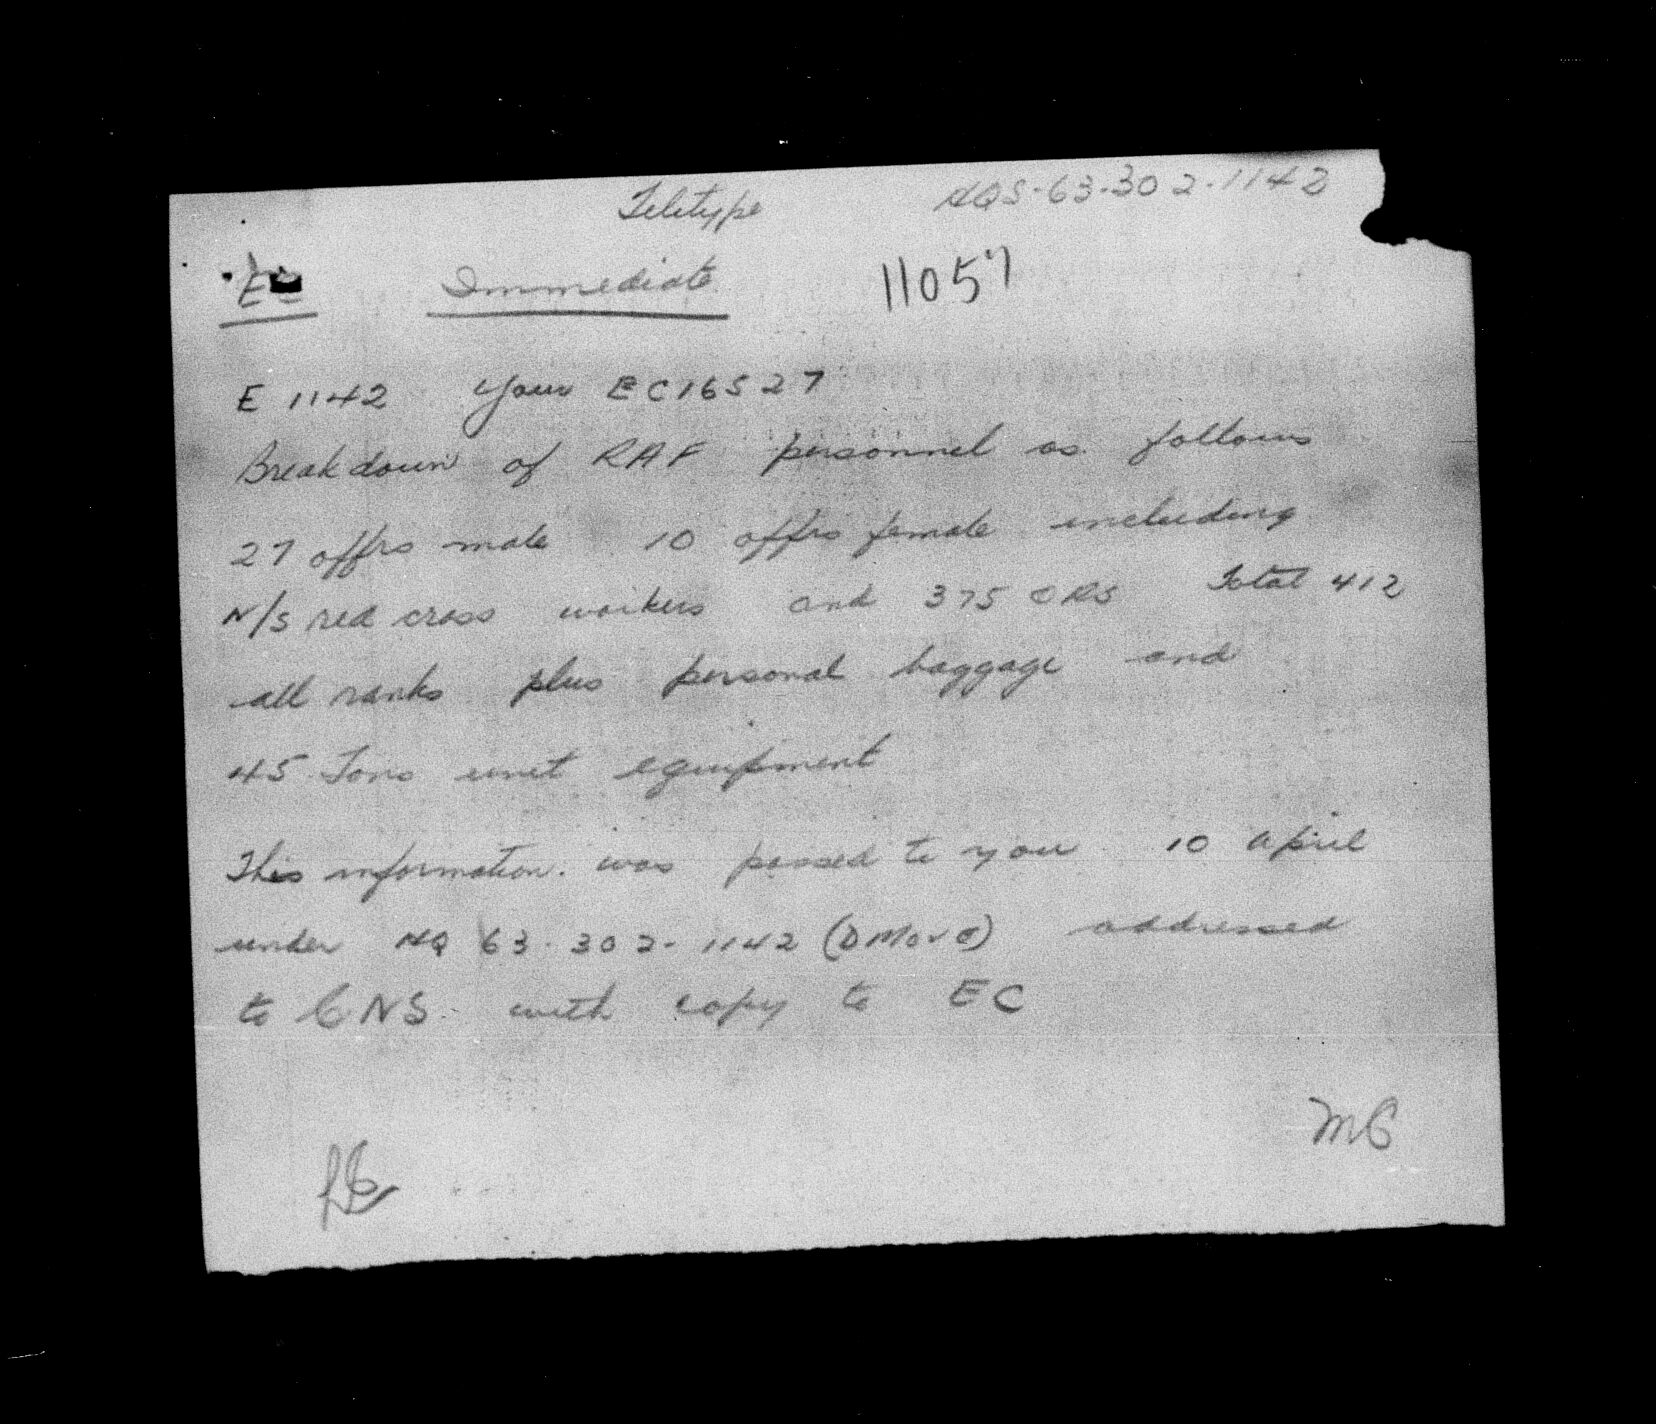 Teletype HQS-63-302-1142
Immediate 11057
E 1142 Your EC16527
Breakdown of RAF personnel as follows
27 offrs male 10 offrs female including
N/S red cross workers and 375 ORS Total 412
all ranks plus personal baggage and
45 Tons unit equipment
This information. was passed to you 10 April
under HQ 63-302-1142 (D Mov C) addressed
to CNS with copy to EC
MC